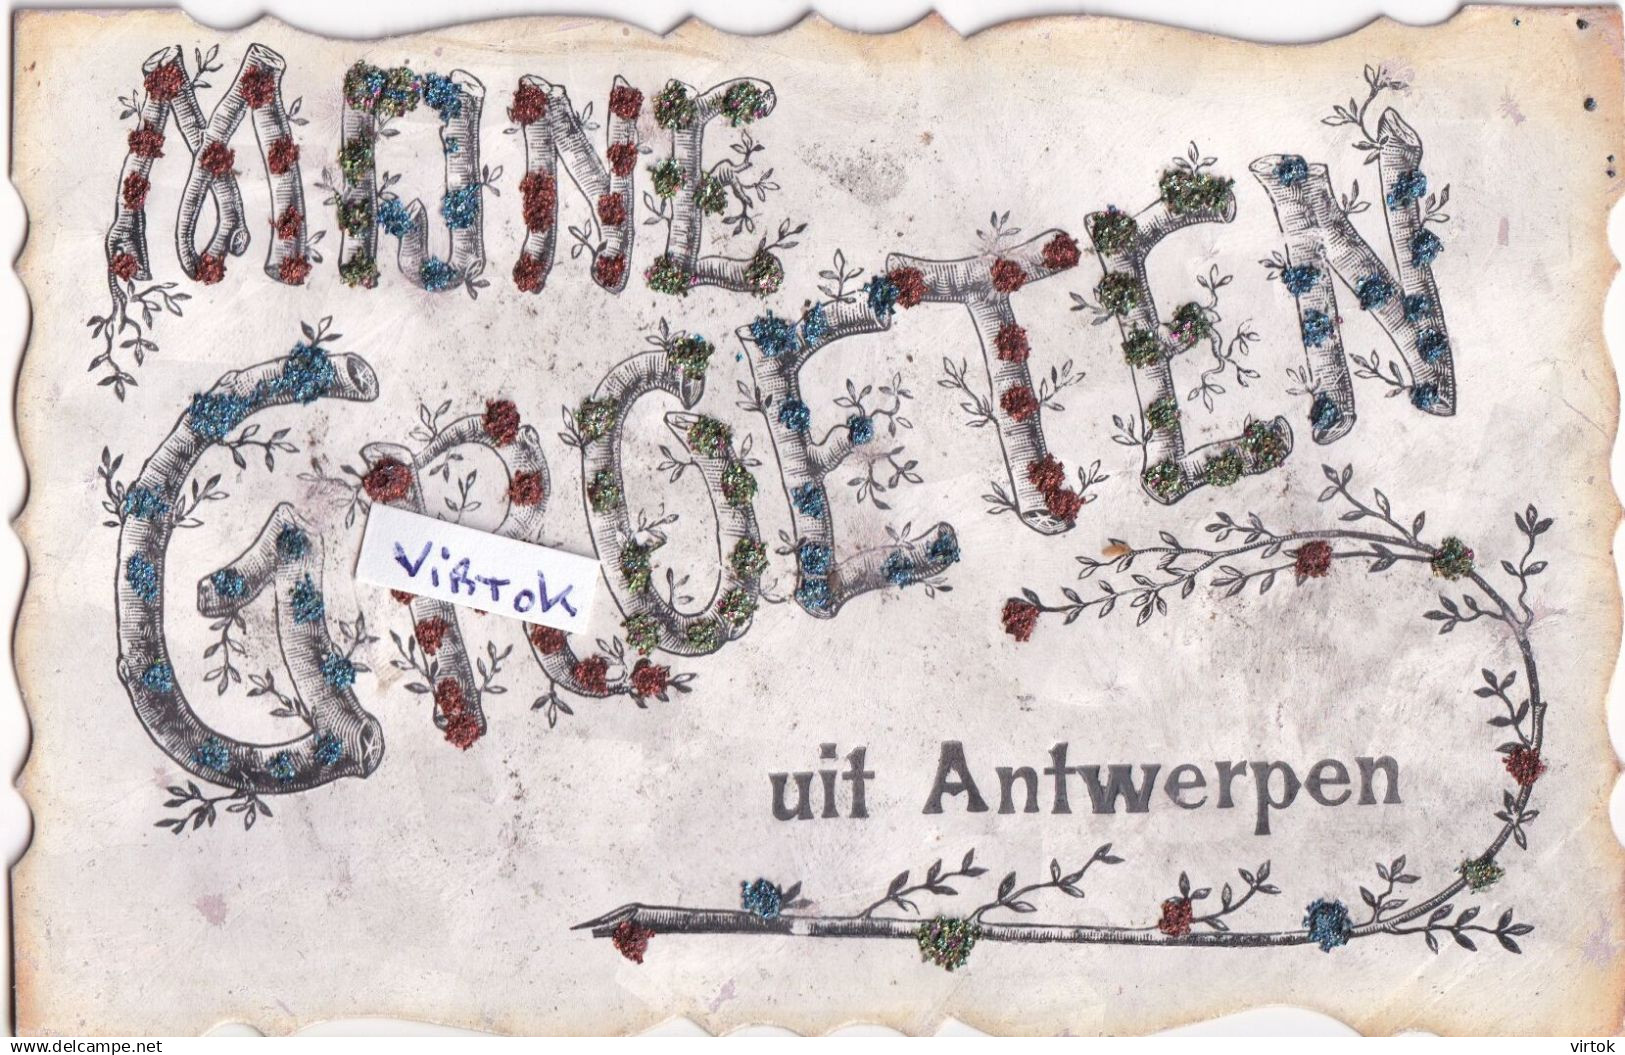 MONE
GROETEN
ViRTOK
uit Antwerpen
www.delcampe.net
virtok